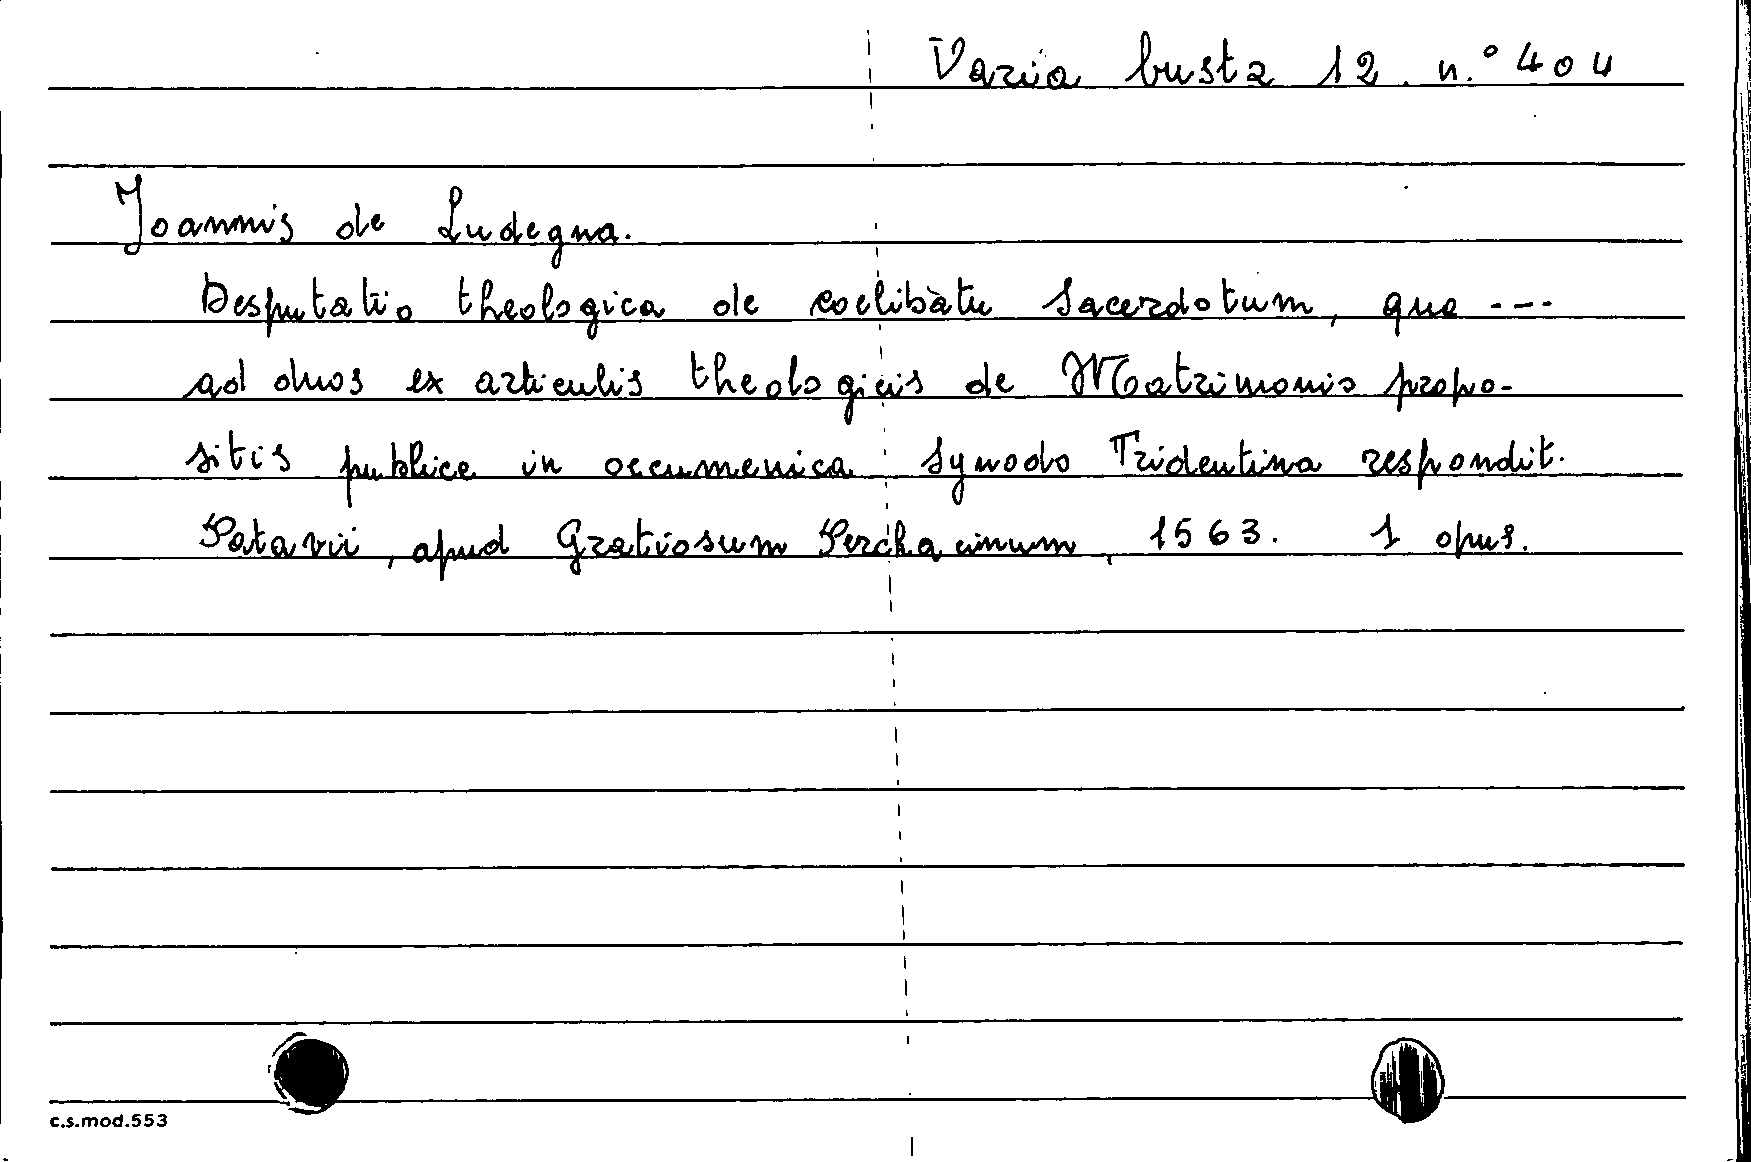 Varia busta 12. n.° 404
Joannis de Ludegna.
Desputatio theologica de coelibatu Sacerdotum, qua ---
ad duos ex articulis theologicis de Matrimonio propo-
sitis publice in oecumenica Synodo Tridentina respondit.
Patavii, apud Gratiosum Perchacinum, 1563. 1 opus.
c.s.mod.553